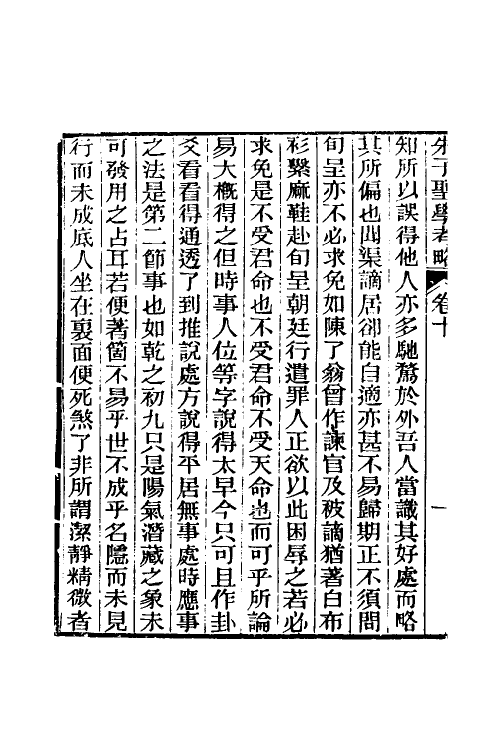 朱子聖學考略 卷十 一
知所以誤得他人亦多馳騖於外吾人當識其好處而略
其所偏也聞渠謫居卻能自適亦甚不易歸期正不須問
旬呈亦不必求免如陳了翁曾作諫官及被謫猶著白布
衫繫麻鞋赴旬呈朝廷行遣罪人正欲以此困辱之若必
求免是不受君命也不受君命不受天命也而可乎所論
易大概得之但時事人位等字說得太早今只可且作卦
爻看看得通透了到推說處方說得平居無事處時應事
之法是第二節事也如乾之初九只是陽氣潛藏之象未
可發用之占耳若便著箇不易乎世不成乎名隱而未見
行而未成底人坐在裏面便死煞了非所謂潔靜精微者